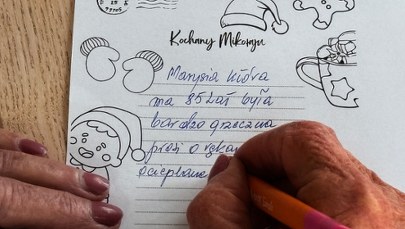 Kochany Mikołaju
Marysia która
ma 85 lat była
bardzo grzeczna
prosi o
ocieplane